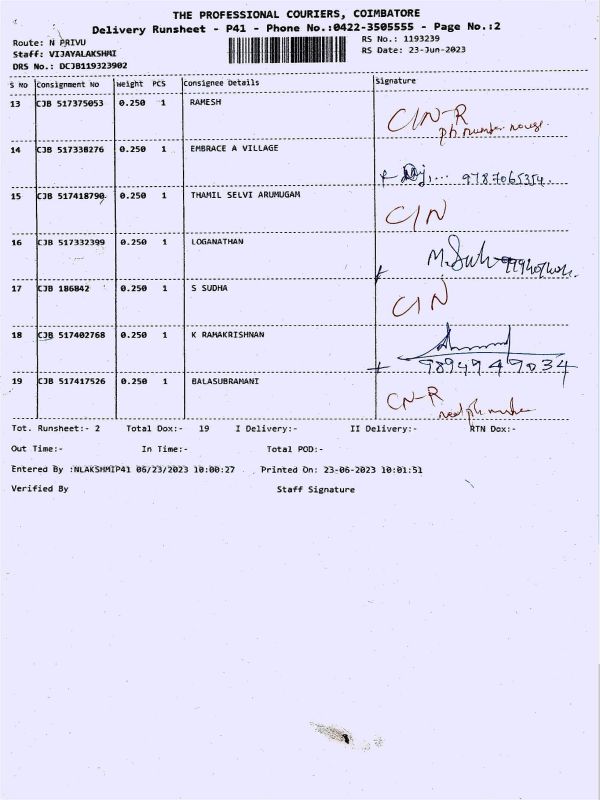 THE PROFESSIONAL COURIERS, COIMBATORE
Delivery Runsheet - P41 - Phone No.:0422-3505555 - Page No.:2
Route: N PRIVU RS No.: 1193239
Staff: VIJAYALAKSHMI RS Date: 23-Jun-2023
DRS No.: DCJB119323902
S No Consignment No Weight PCS Consignee Details Signature
13 CJB 517375053 0.250 1 RAMESH
14 CJB 517338276 0.250 1 EMBRACE A VILLAGE 9787065354.
15 CJB 517418790 0.250 1 THAMIL SELVI ARUMUGAM C/N
16 CJB 517332399 0.250 1 LOGANATHAN
17 CJB 186842 0.250 1 S SUDHA C/N
18 CJB 517402768 0.250 1 K RAMAKRISHNAN 9894949034
19 CJB 517417526 0.250 1 BALASUBRAMANI
Tot. Runsheet:- 2 Total Dox:- 19 I Delivery:- II Delivery:- RTN Dox:-
Out Time:- In Time:- Total POD:-
Entered By :NLAKSHMIP41 06/23/2023 10:00:27 Printed On: 23-06-2023 10:01:51
Verified By Staff Signature